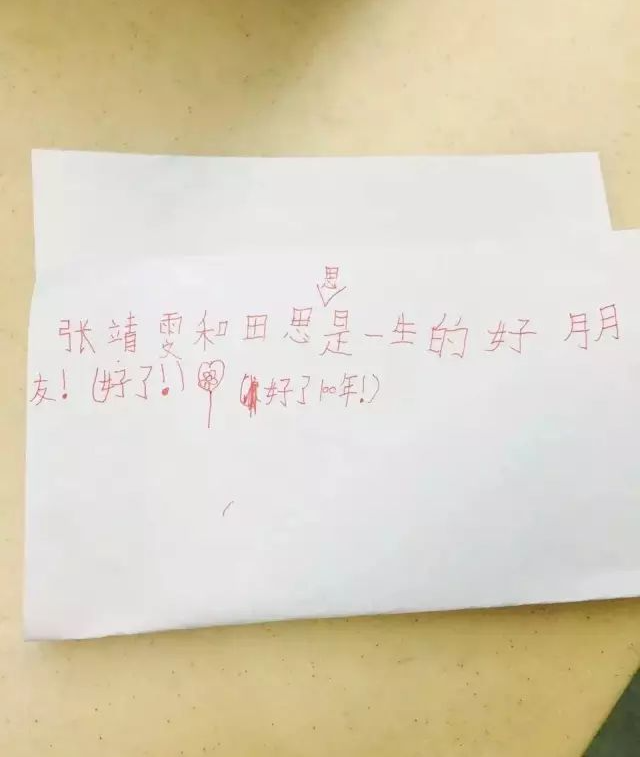 思
张靖雯和田思是一生的好朋
友！(好了！) (好了100年！)